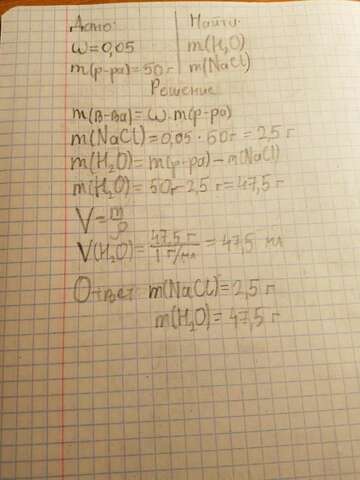 Дано: Найти:
ω=0,05 m(H₂O)
m(р-ра)=50 г m(NaCl)
Решение
m(в-ва)=ω·m(р-ра)
m(NaCl)=0,05·50г=2,5 г
m(H₂O)=m(р-ра)-m(NaCl)
m(H₂O)=50г-2,5 г=47,5 г
V=m/ρ
V(H₂O)=47,5 г/1 г/мл=47,5 мл
Ответ: m(NaCl)=2,5 г
m(H₂O)=47,5 г